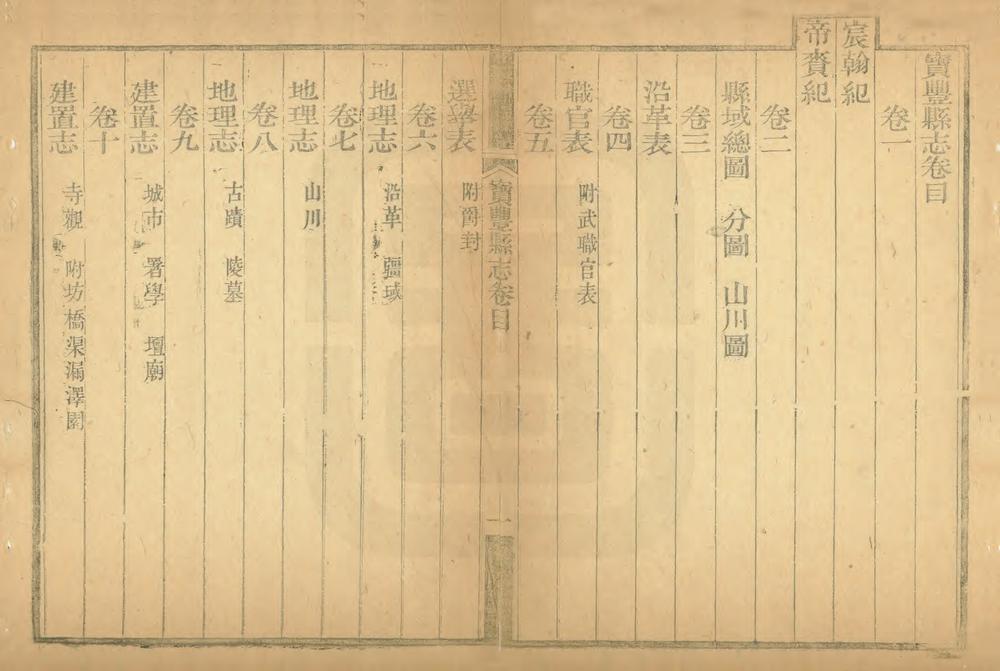 寶豐縣志卷目
卷一
宸翰紀
帝賚紀
卷二
縣域總圖 分圖 山川圖
卷三
沿革表
卷四
職官表 附武職官表
卷五
寶豐縣志卷目 一
選舉表 附爵封
卷六
地理志 沿革 疆域
卷七
地理志 山川
卷八
地理志 古蹟 陵墓
卷九
建置志 城市 署學 壇廟
卷十
建置志 寺觀 附坊橋渠漏澤園